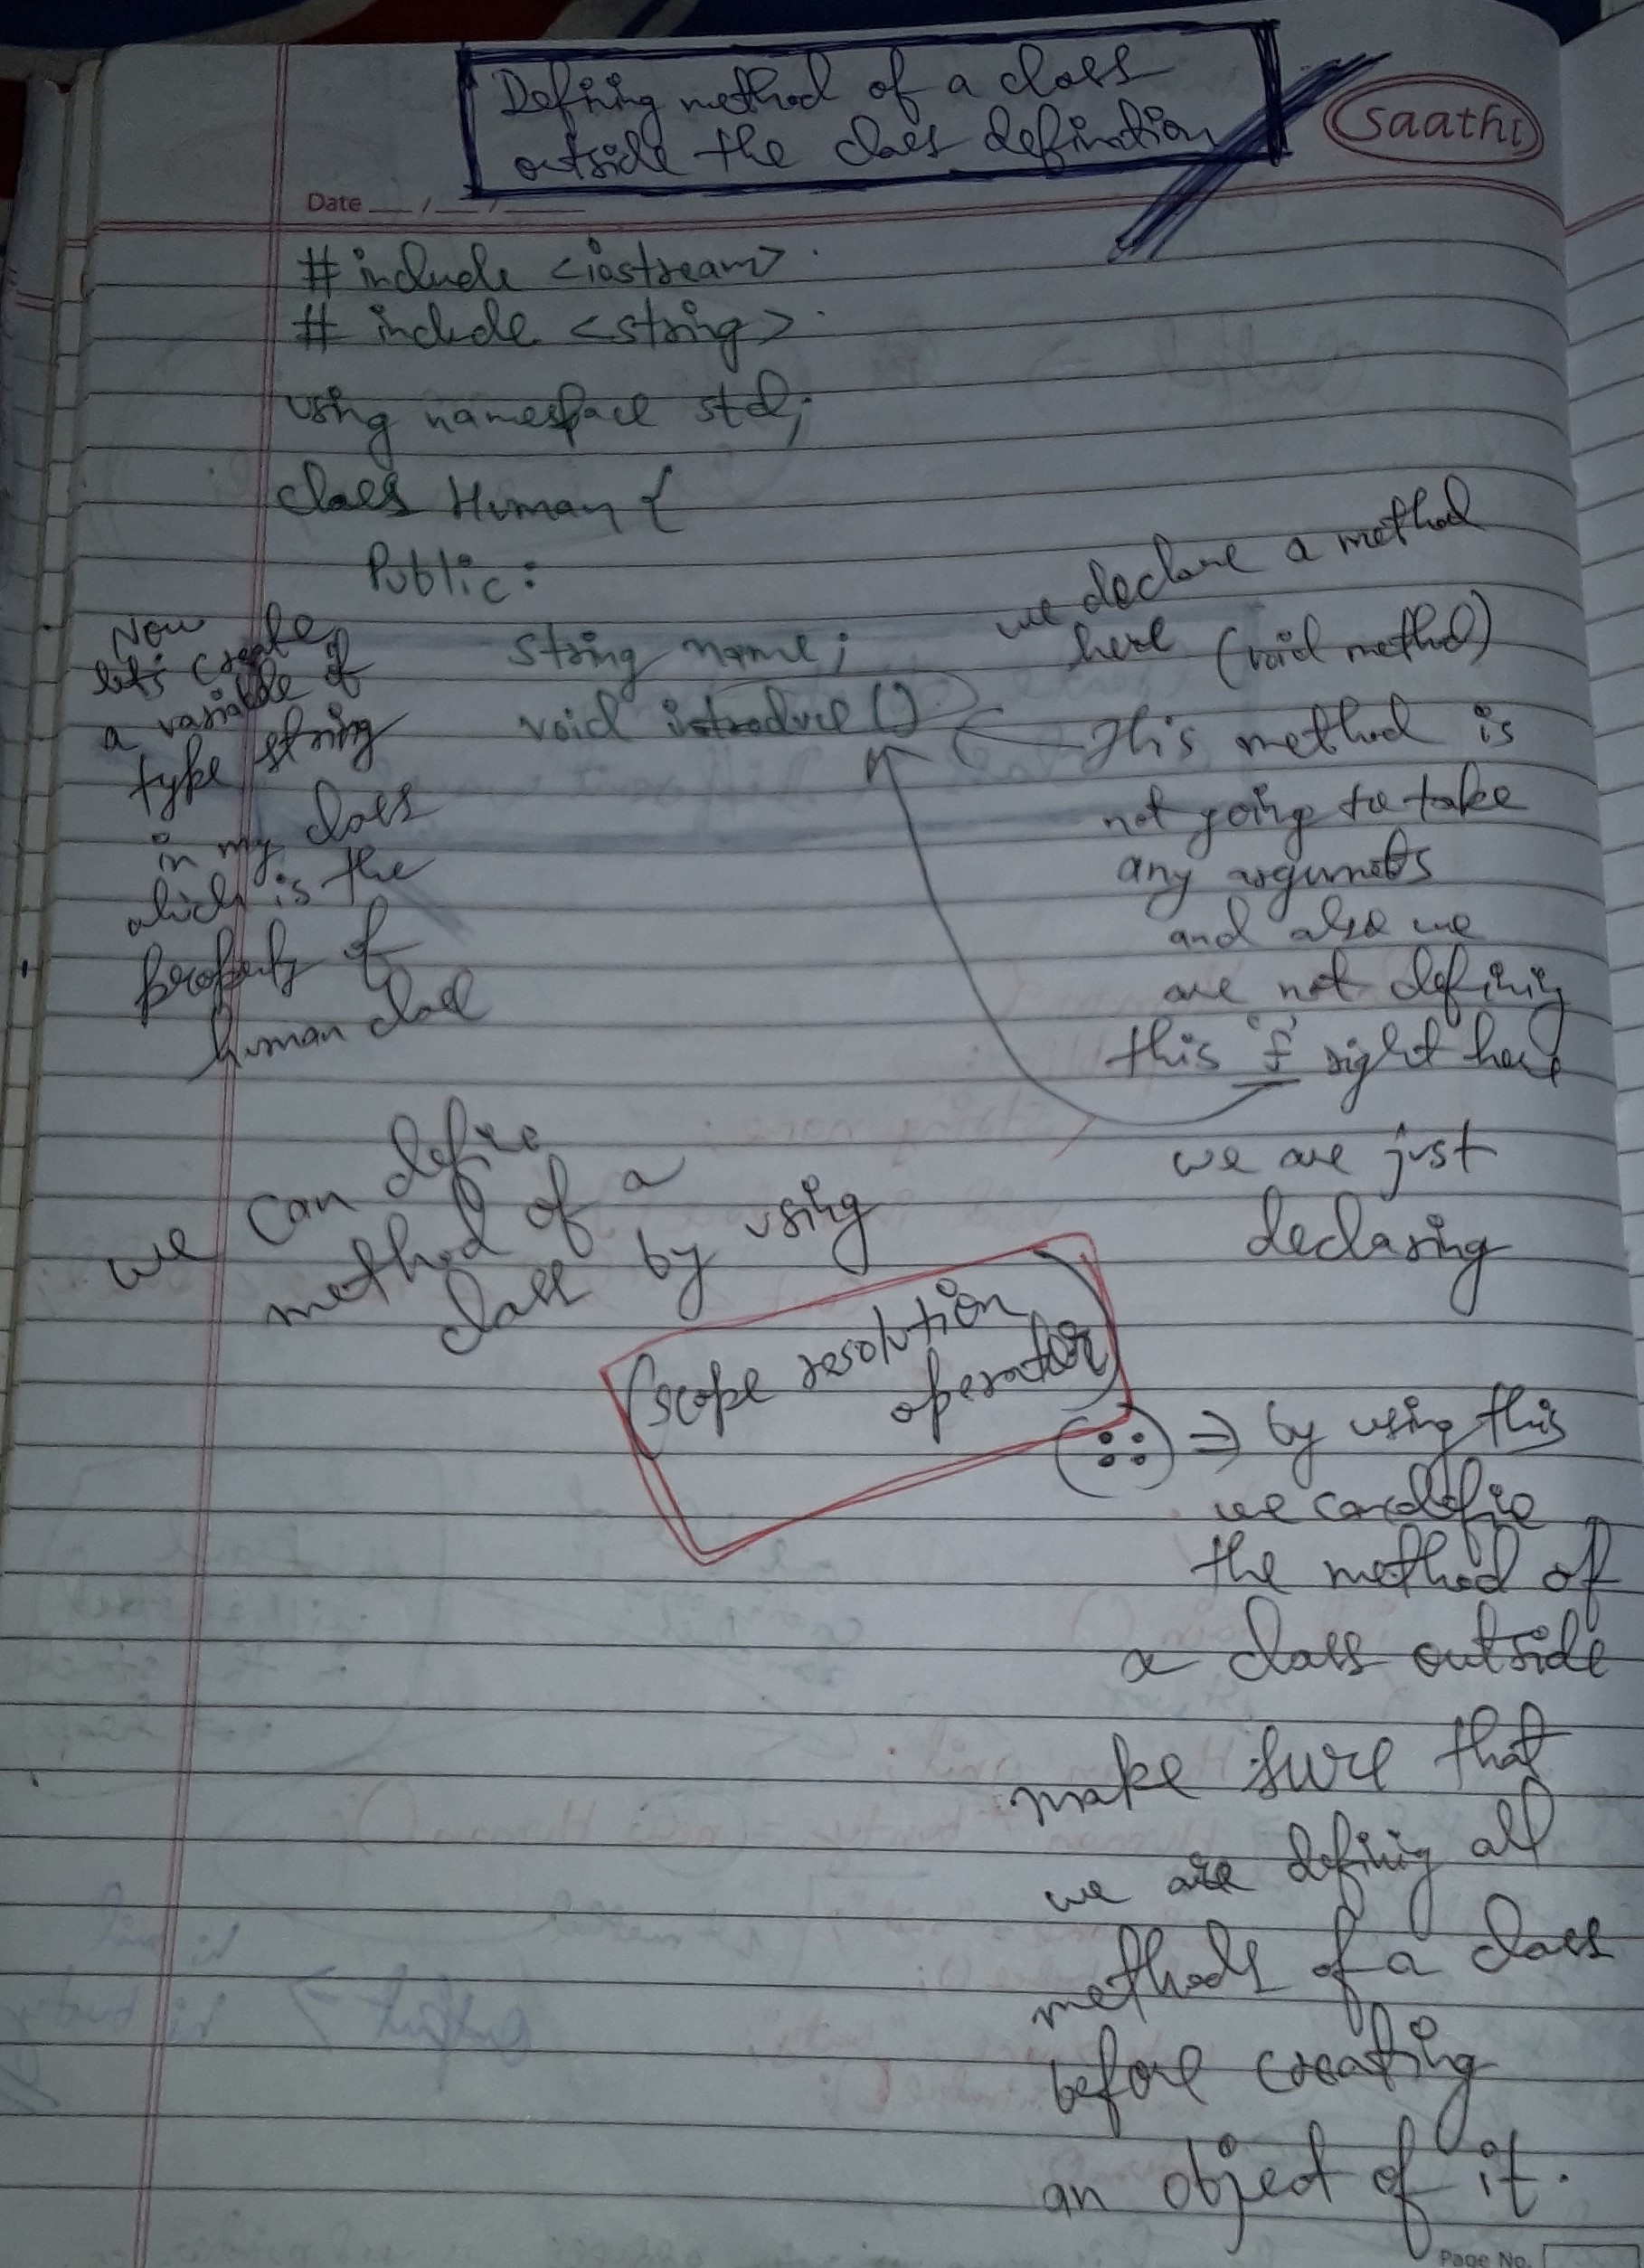 Defining method of a class
outside the class defination
saathi
Date __/__/____
# include <iostream>
# include <string>
using namespace std;
class Human {
Public:
string name;
void introduce ()
Now
let's create
a variable of
type string
in my class
which is the
property of
human class
we declare a method
here (void method)
This method is
not going to take
any arguments
and also we
are not defining
this 'f' right here
we are just
declaring
we can define
method of a
class by using
(scope resolution
operator)
(::) ⇒ by using this
we can define
the method of
a class outside
make sure that
we are defining all
methods of a class
before creating
an object of it.
Page No.